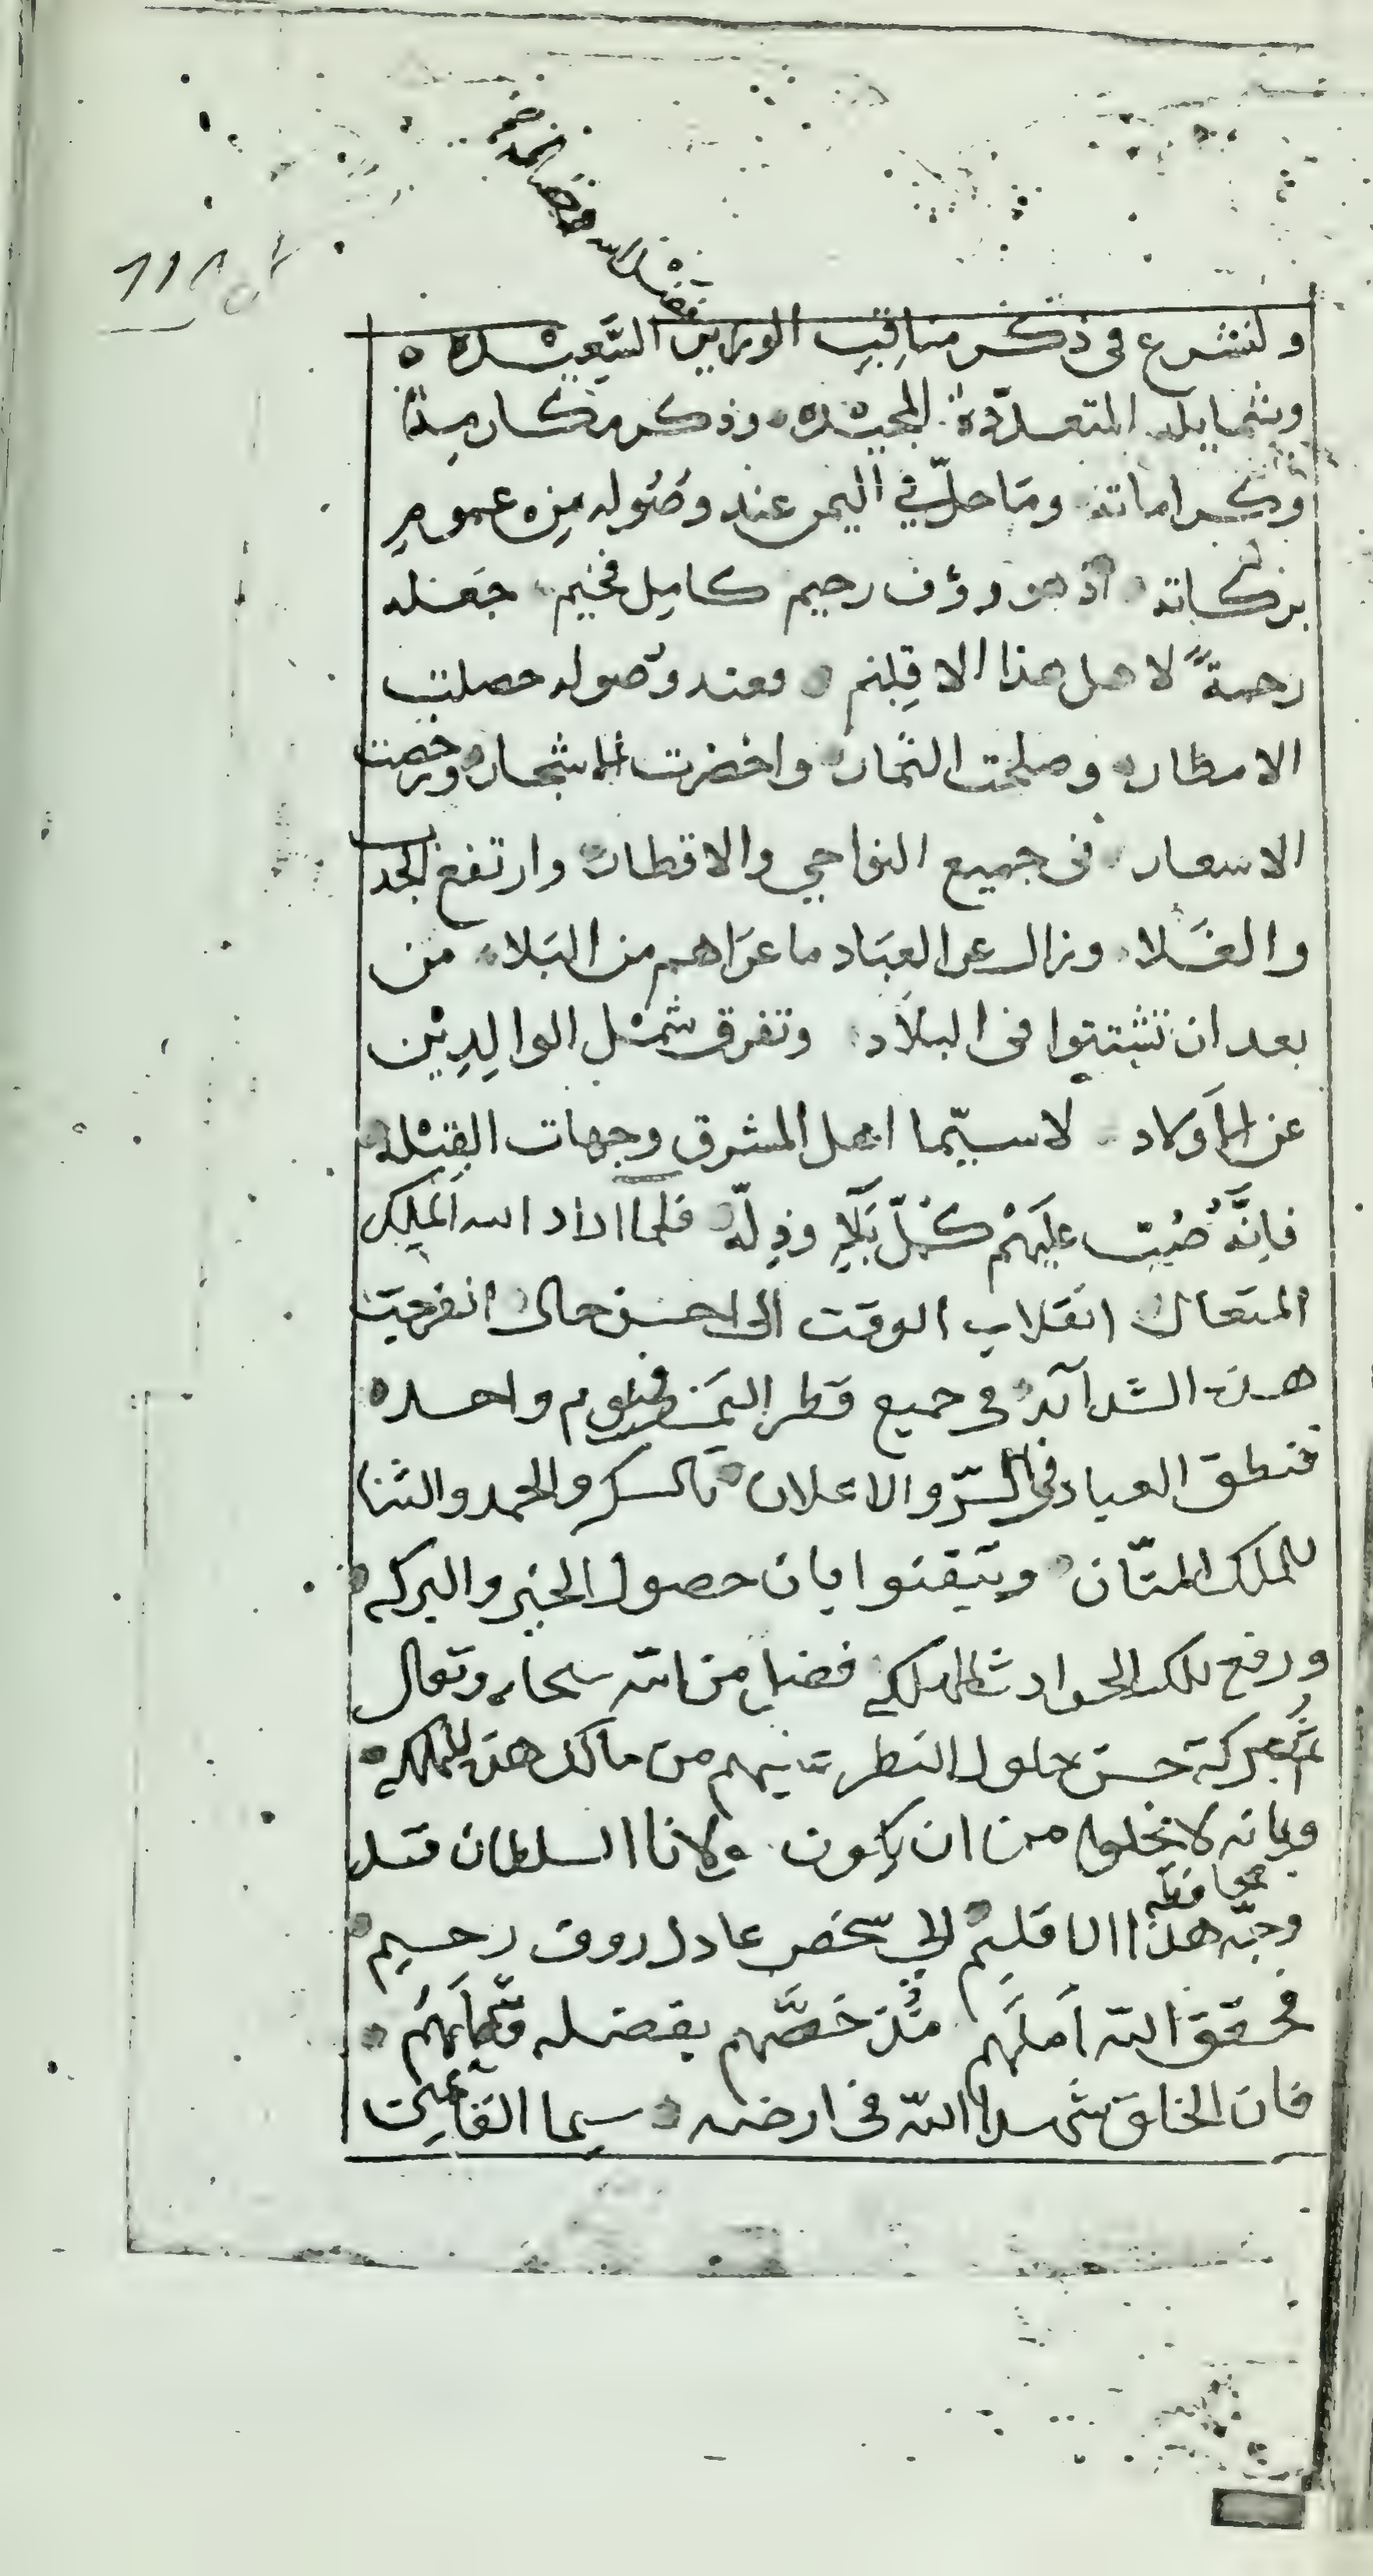 ولنشرع فى ذكر مناقب الوزير السَّعيده
وشمايله المتعدّدة المجيده وذكر مكارمه
وكراماته وما حلّ في اليمن عند وصُوله مِن عموم
بركاته اذ هو رؤف رحيم كامِل فخيم جَعَله
رحمةً لاهل هذا الاقِليم فعند وصوله حصلت
الامطار وصلحت الثمار واخضرت الاشجار ورخصت
الاسعار فى جميع النواحي والاقطار وارتفع الجد
والغَلا وزال عن العِبَاد ما عرَاهم من البَلا من
بعد ان تشتتوا فى البلاد وتفرق شمْل الوالِدِيْن
عن الاَولاد لاسيّما اهل المشرق وجهات القِبْله
فاِنَّهُ صُبَّت عليَهْم كُلّ بَلآءٍ وذِلّة فلما اراد الله المَلِك
المتعال انقلاب الوقت الى احسن حال انفرجت
هذه الشدآئد فى جميع قطر اليمَن في يوم واحده
فنطق العباد فى السّر والاعلان بالشكر والحمد والثنا
للملك المنّان وتيقنوا بان حصول الخير والبركه
ورفع تلك الحوادث المهلكه فضل من الله سبحانه وتعالى
ثم ببركة حسن حلول النظر اليهم من مالك هذه المملكه
وبانه لا يخلوا من ان يكون مولانا السلطان قد
وجّه محافظه هذا الاقليم الى شخص عادل روف رحيم
فحقق الله اَملَهم مُّذ خصَّهم بفضله وشملَهُم
فان الخلق شهدا الله فى ارضه سيما القآئمين